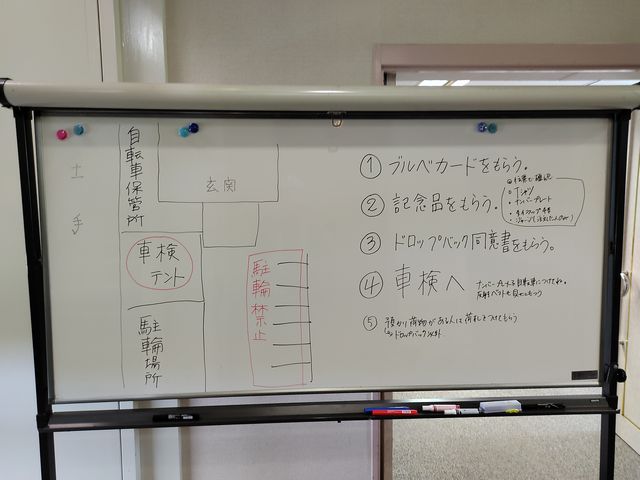 土
手
自転車保管所
車検
テント
駐輪場所
玄関
駐輪禁止
① ブルベカードをもらう。
② 記念品をもらう。
・Tシャツ
・ナンバープレート
③ ドロップバック同意書をもらう。
④ 車検へ
ナンバープレートを自転車につけてね。
反射ベストも見せてもらう
⑤ 預かり荷物がある人は荷札をつけてもらう
ドロップバック以外